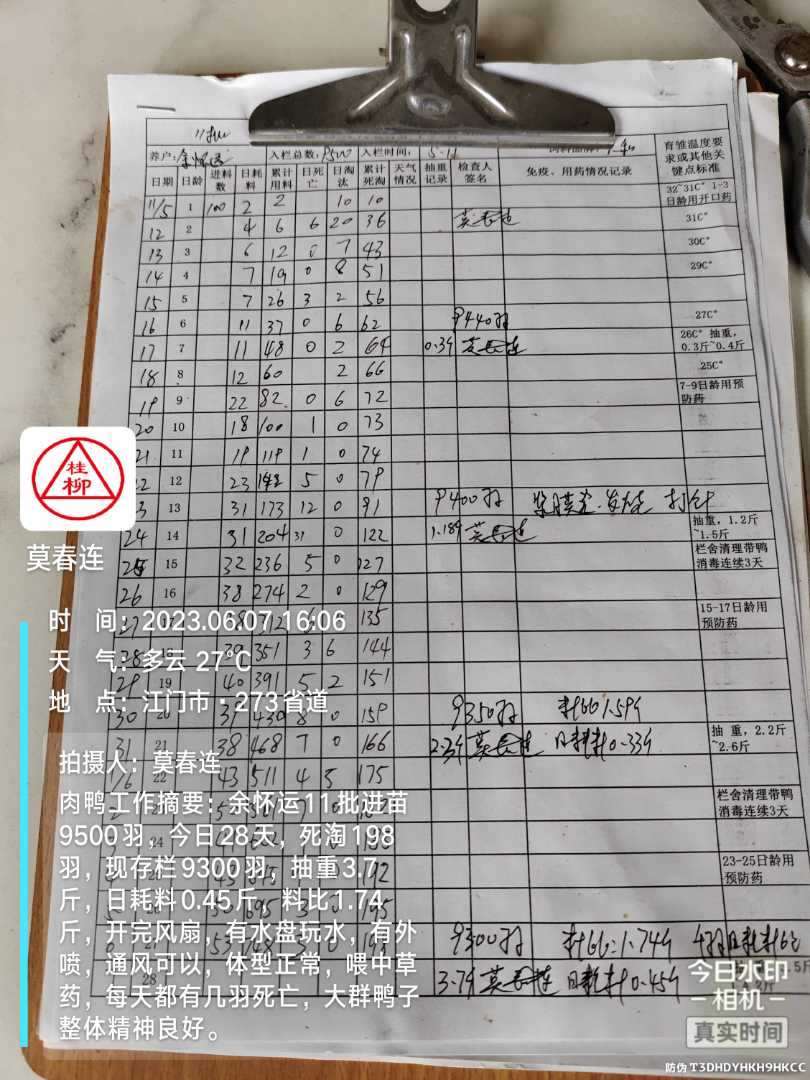 养户: 入栏总数:9500 入栏时间: 5-11
日期 日龄 进料数 日耗料 累计用料 日死亡 日淘汰 累计死淘 天气情况 抽重记录 检查人签名 免疫、用药情况记录 育雏温度要求或其他关键点标准
11/5 1 100 2 2 10 10 32~31C° 1-3日龄用开口药
12 2 4 6 6 20 36 莫春连 31C°
13 3 6 12 0 7 43 30C°
14 4 7 19 0 8 51 29C°
15 5 7 26 3 2 56
16 6 11 37 0 6 62 9440羽 27C°
17 7 11 48 0 2 64 0.39 莫春连 26C° 抽重,0.3斤~0.4斤
18 8 12 60 2 66 25C°
19 9 22 82 0 6 72 7-9日龄用预防药
20 10 18 100 1 0 73
21 11 19 119 1 0 74
12 23 142 5 0 79
13 31 173 12 0 91 9400羽 打针
24 14 31 204 31 0 122 1.18斤 莫春连 抽重,1.2斤~1.5斤
25 15 32 236 5 0 127 栏舍清理带鸭消毒连续3天
26 16 38 274 2 0 129
27 312 135 15-17日龄用预防药
28 351 3 6 144
29 19 40 391 5 2 151
30 20 430 8 0 159 9350羽 料比1.59斤
31 21 38 468 7 0 166 2.3斤 莫春连 日耗料0.33斤 抽 重,2.2斤~2.6斤
1/6 22 43 511 4 5 175
栏舍清理带鸭消毒连续3天
24
192 23-25日龄用预防药
695 3 0 195
53 748 9300羽 料比:1.74斤
28 3.7斤 莫春连 日耗料0.45斤
桂柳
莫春连
时 间:2023.06.07 16:06
天 气:多云 27℃
地 点:江门市·273省道
拍摄人:莫春连
肉鸭工作摘要:余怀运11批进苗
9500羽,今日28天,死淘198
羽,现存栏9300羽,抽重3.7
斤,日耗料0.45斤,料比1.74
斤,开完风扇,有水盘玩水,有外
喷,通风可以,体型正常,喂中草
药,每天都有几羽死亡,大群鸭子
整体精神良好。
今日水印
相机
真实时间
防伪 T3DHDYHKH9HKCC